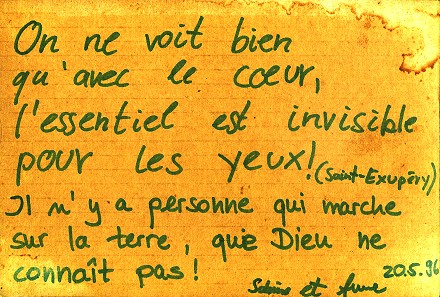 On ne voit bien
qu'avec le cœur,
l'essentiel est invisible
pour les yeux! (Saint-Exupéry)
Il n'y a personne qui marche
sur la terre, que Dieu ne
connaît pas! 20.5.96
et